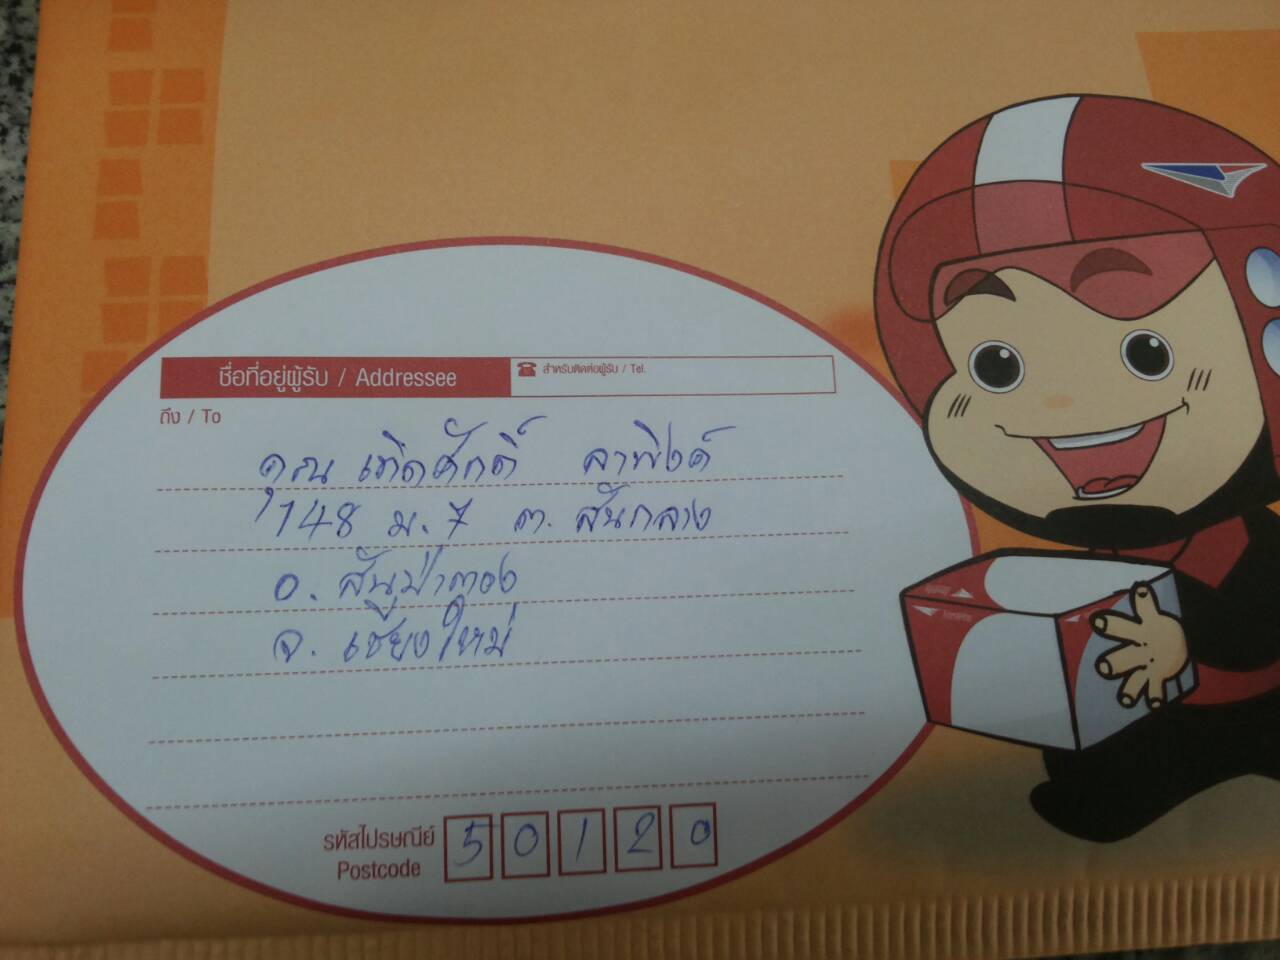 ชื่อที่อยู่ผู้รับ / Addressee
สำหรับติดต่อผู้รับ / Tel.
ถึง / To
คุณ เทิดศักดิ์ ลาพิงค์
148 ม.7 ต. สันกลาง
อ. สันป่าตอง
จ. เชียงใหม่
รหัสไปรษณีย์ 50120
Postcode